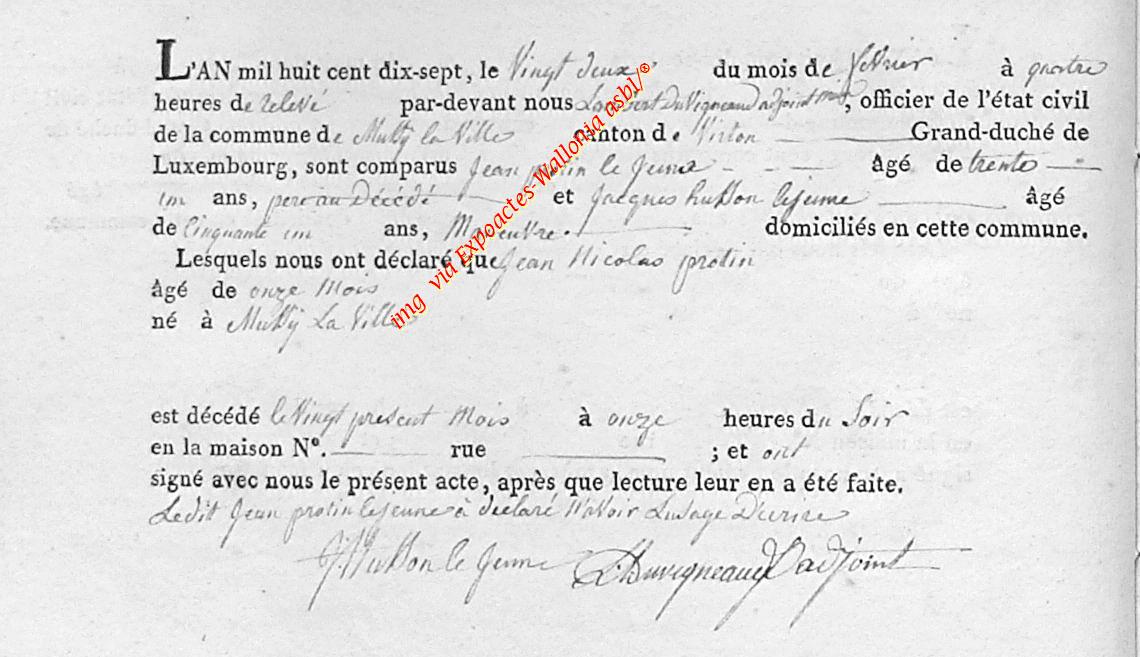 L'AN mil huit cent dix-sept, le Vingt deux du mois de fevrier à quatre
heures de relevé par-devant nous Lambert Duvigneaud adjoint, officier de l'état civil
de la commune de Mussy la Ville canton de Virton Grand-duché de
Luxembourg, sont comparus Jean protin le Jeune âgé de trente
un ans, pere au Décédé et Jacques husson lejeune âgé
de Cinquante un ans, Manœuvre. domiciliés en cette commune.
Lesquels nous ont déclaré que Jean Nicolas protin
âgé de onze Mois
né à Mussy La Ville
est décédé le Vingt present Mois à onze heures du Soir
en la maison N°. rue ; et ont
signé avec nous le présent acte, après que lecture leur en a été faite.
Ledit Jean protin lejeune à déclaré N'avoir Lusage Decrire
J Husson le Jeune L. Duvigneaud adjoint
img via Expoactes-Wallonia asbl/®